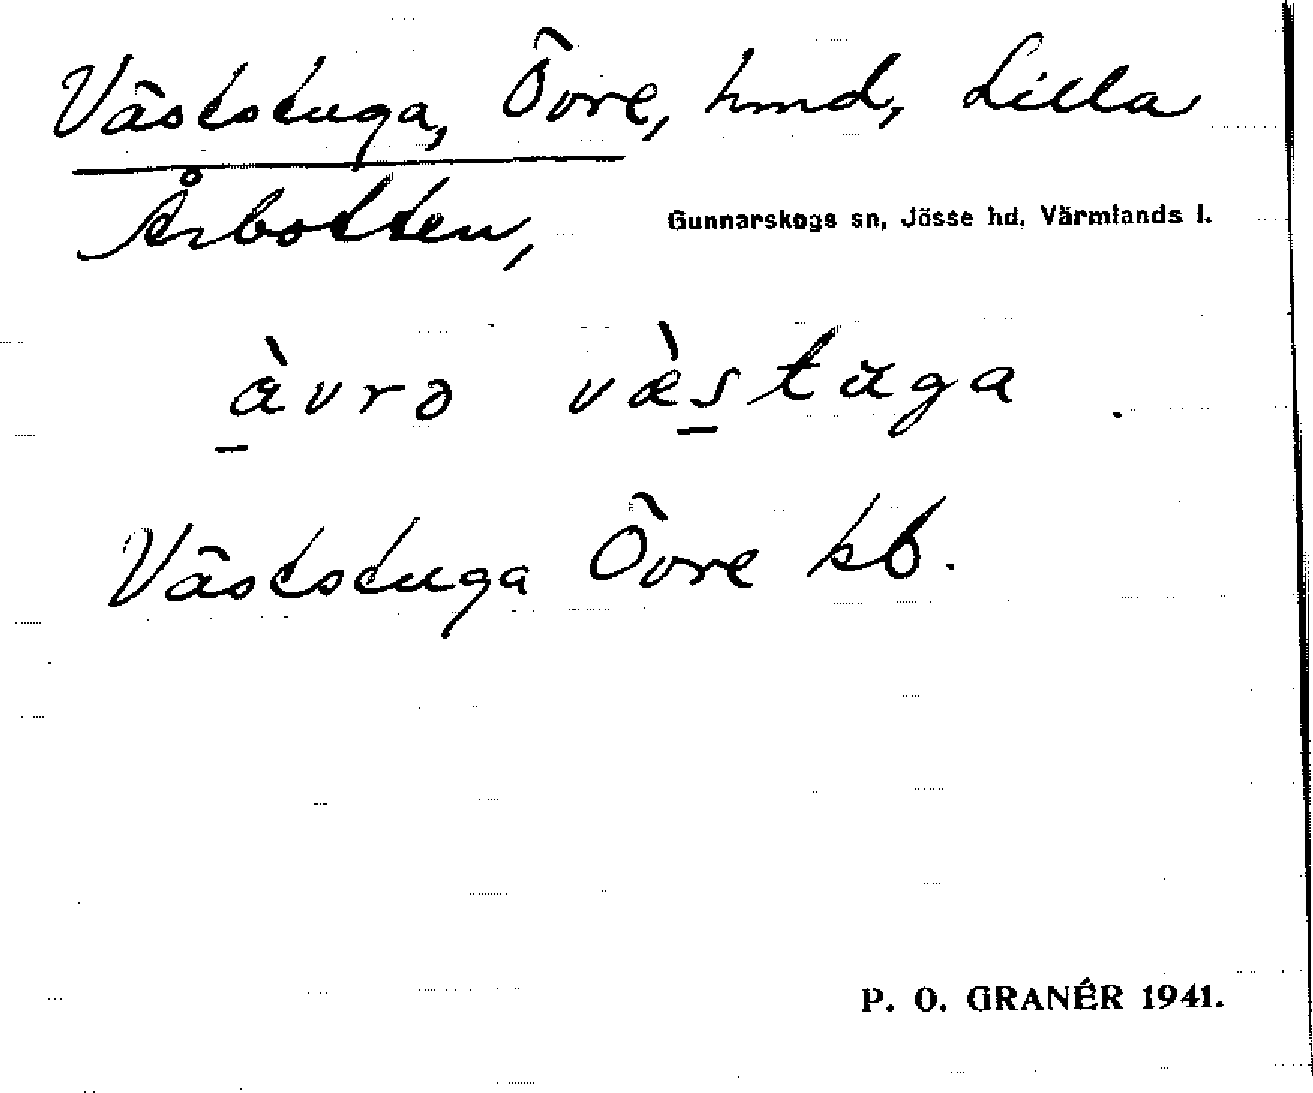 Väststuga, Övre, hmd, Lilla
Årbotten, Gunnarskogs sn, Jösse hd, Värmlands l.
àvrə vàstuga .
Väststuga Övre kb.
P. O. GRANÉR 1941.